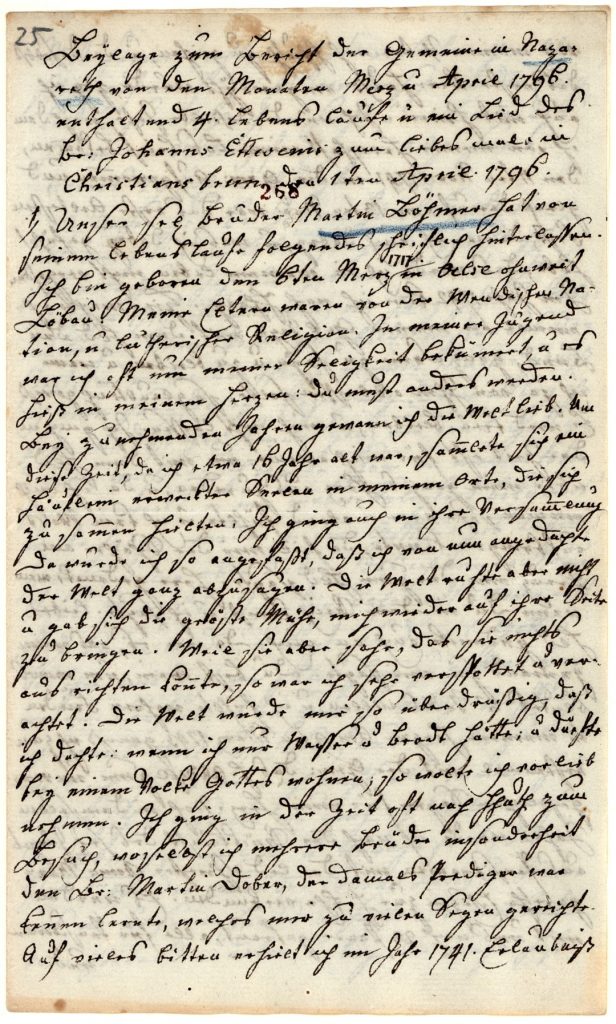 25
Beylage zum Bericht der Gemeine in Naza-
reth von den Monaten Merz u April 1796.
enthaltend 4. Lebens läufe u ein Lied des
Br: Johanns Ettweins zum liebes male in
Christiansbrunn den 1ten April 1796.
258
1/ Unser sel Bruder Martin Böhmer hat von
seinem Lebenslaufe folgendes schriftlich hinterlassen.
1717
Ich bin geboren den 6ten Merz in Oelse ohnweit
Löbau. Meine Eltern waren von der Wendischen Na-
tion, u lutherischer Religion. In meiner Jugend
war ich oft um meiner Seligkeit bekümert, u es
hieß in meinem Herzen: du must anders werden.
Bey zunehmenden Jahren gewann ich die Welt lieb. Um
diese Zeit, da ich etwa 16 Jahr alt war, sammlete sich ein
häuflein erweckter Seelen in meinem Orte, die sich
zusammen hielten. Ich ging auch in ihre Versamlung
Da wurde ich so angefaßt, daß ich von nun an gedachte
der Welt ganz abzusagen. Die Welt ruhte aber nicht
u gab sich die gröste Mühe, mich wieder auf ihre Seite
zu bringen. Weil sie aber sahe, das sie nichts
aus richten konnte, so war ich sehr verspottet u ver-
achtet. Die Welt wurde mir so überdrüßig, daß
ich dachte: wenn ich nur Wasser u brodt hätte, u dürfte
bey einem Volke Gottes wohnen, so wolte ich vorlieb
nehmen. Ich ging in der Zeit oft nach Hhuth zum
Besuch, woselbst ich mehrere Brüder insonderheit
den Br: Martin Dober, der damals Prediger war
kennen lernte, welches mir zu vielen Segen gereichte.
Auf vieles bitten erhielt ich im Jahr 1741. Erlaubniß